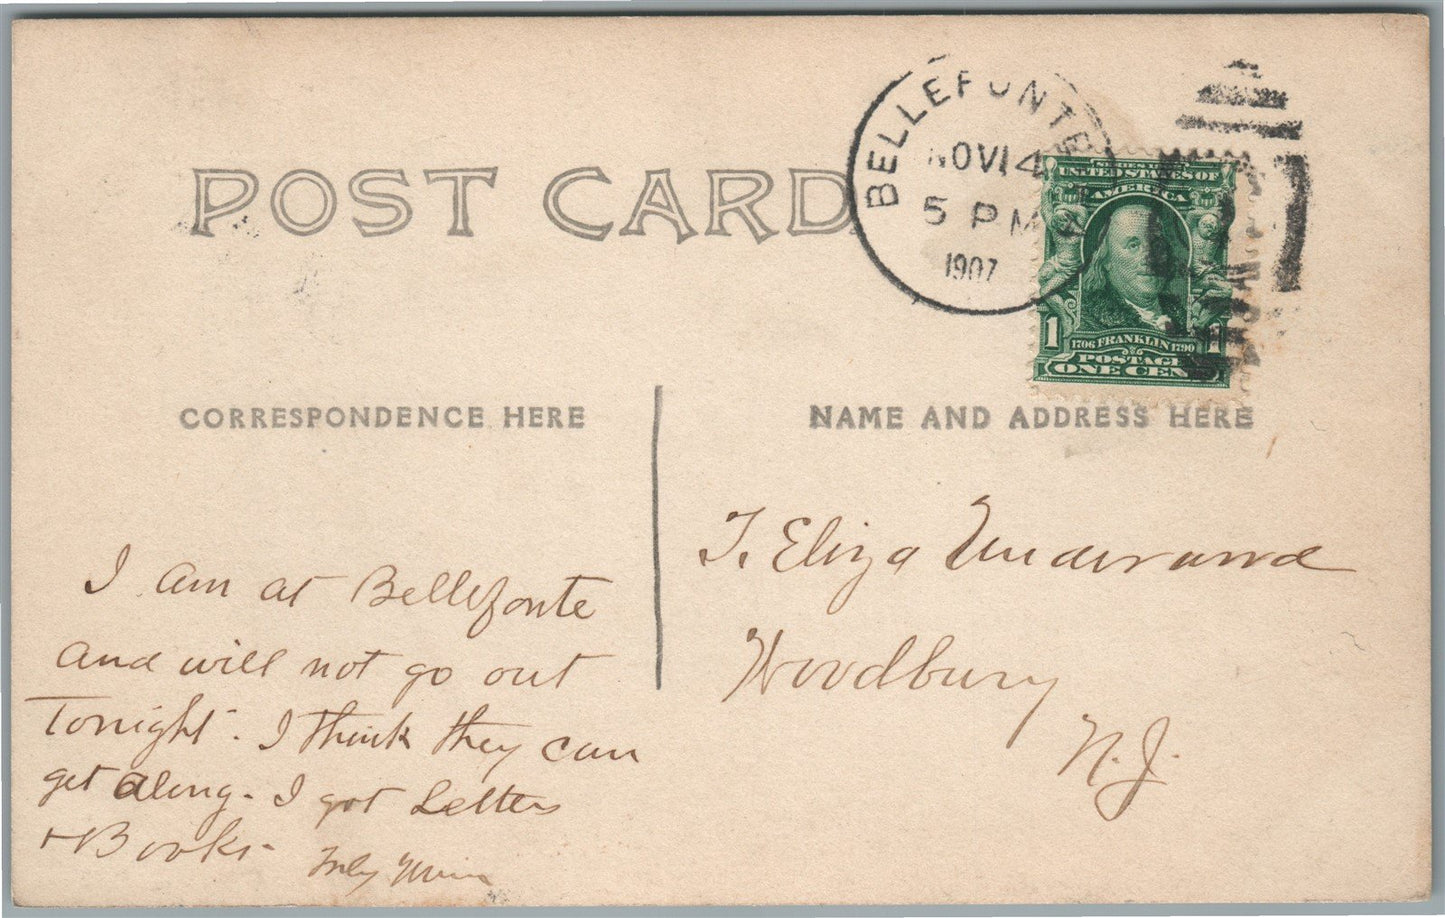 POST CARD
BELLEFONTE
NOV 14
5 PM
1907
UNITED STATES OF
AMERICA
1 1
1706 FRANKLIN 1790
POSTAGE
ONE CENT
CORRESPONDENCE HERE
NAME AND ADDRESS HERE
I am at Bellefonte
and will not go out
Tonight. I think they can
get along. I got Letters
+ Books.
T. Eliza
Woodbury
N.J.